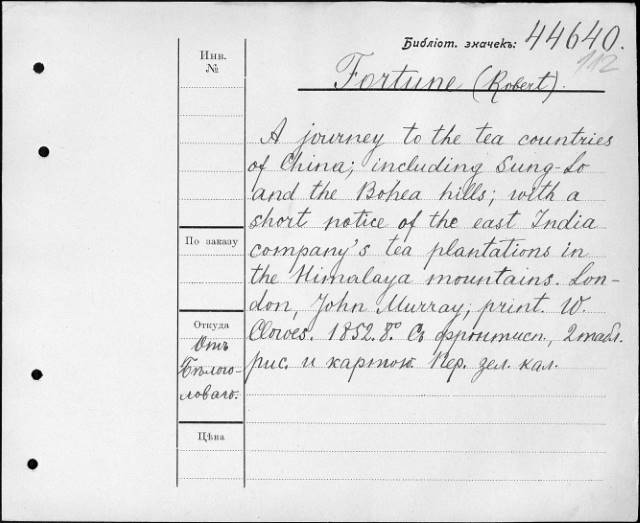 Библіот. значекъ: 44640.
112
Fortune (Robert).
Инв.
№
A journey to the tea countries
of China; including Sung-Lo
and the Bohea hills; with a
short notice of the east India
company's tea plantations in
the Himalaya mountains. Lon-
don, John Murray, print. W.
Clowes. 1852. 8.º Съ фронтисп., 2 табл.
рис. и картою. Пер. зел. кал.
По заказу
Откуда
Отъ
Бѣлого-
ловаго.
Цѣна